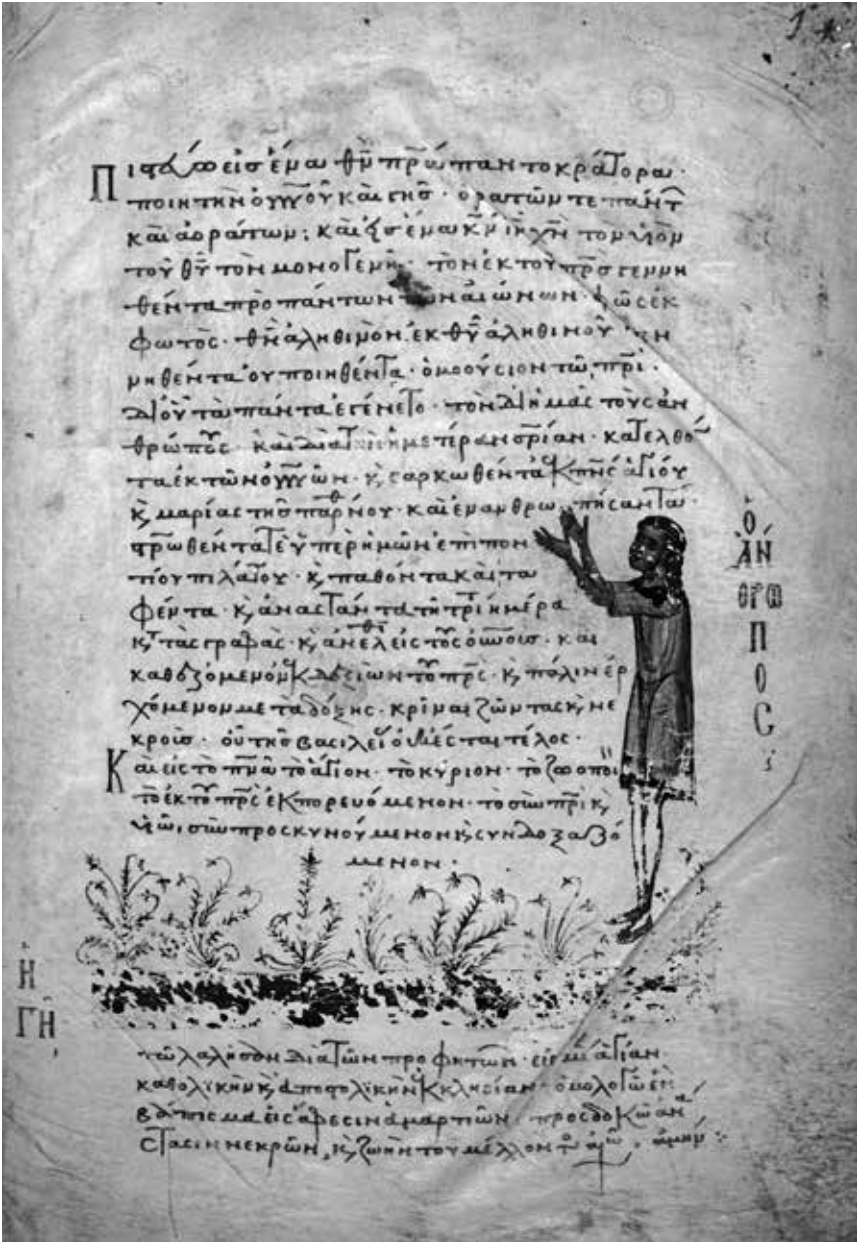 Πιστεύω εἰς ἕνα θν̅ πρ̅α παντοκράτορα·
ποιητὴν οὐν̅οῦ καὶ γῆς· ὁρατῶν τε πάντ
καὶ ἀοράτων· καὶ εἰς ἕνα κν̅ ιν̅ χν̅ τὸν υἱὸν
τοῦ θυ̅ τὸν μονογενῆ· τὸν ἐκ τοῦ πρ̅ς γεννη
θέντα πρὸ πάντων τῶν αἰώνων· φῶς ἐκ
φωτός· θν̅ ἀληθινὸν ἐκ θυ̅ ἀληθινοῦ γεν
νηθέντα οὐ ποιηθέντα· ὁμοούσιον τῷ πρ̅ι·
δι' οὗ τὰ πάντα ἐγένετο· τὸν δι' ἡμᾶς τοὺς ἀν
θρώπους· καὶ διὰ τὴν ἡμετέραν σρ̅ίαν· κατελθό
τα ἐκ τῶν οὐν̅ῶν· κ̀ σαρκωθέντα ἐκ πν̅ς ἁγίου
κ̀ μαρίας τῆς παρθνου· καὶ ἐνανθρωπήσαντα·
στρ̅ωθέντα τε ὑπὲρ ἡμῶν ἐπὶ πον
τίου πιλάτου· κ̀ παθόντα καὶ τα
φέντα· κ̀ ἀναστάντα τῇ τρίτῃ ἡμέρα
κ̀τ τὰς γραφάς· κ̀ ἀνελθτ εἰς τοὺς οὐν̅οις· και
καθεζόμενον ἐκ δεξιῶν τοῦ πρ̅ς· κ̀ πάλιν ἐρ
χόμενον μετα δόξης· κρῖναι ζῶντας κ̀ νε
κροίς· οὗ τῆς βασιλεί οὐκ ἔσται τέλος·
Καὶ εἰς τὸ πν̅α τὸ ἅγιον· τὸ κύριον· τὸ ζωοποι
τὸ ἐκ τοῦ πρ̅ς ἐκπορευόμενον· τὸ σὺν πρ̅ι κ̀
υἱῷ, συμπροσκυνούμενον κ̀ συνδοξαζό
μενον·
ὁ
ἄν
θρω
π
ο
ς
ἡ
γῆ,
τὸ λαλῆσον διὰ τῶν προφητῶν· εἰς μί ἁγίαν
καθολικὴν κ̀ ἀποστολικὴν ἐκκλησίαν· ὁμολογῶ ἓν
βάπτισμα εἰς ἄφεσιν ἁμαρτιῶν· προσδοκῶ ἀνά
στασιν νεκρῶν, κ̀ ζωὴν τοῦ μέλλοντος αἰῶ· ἀμήν